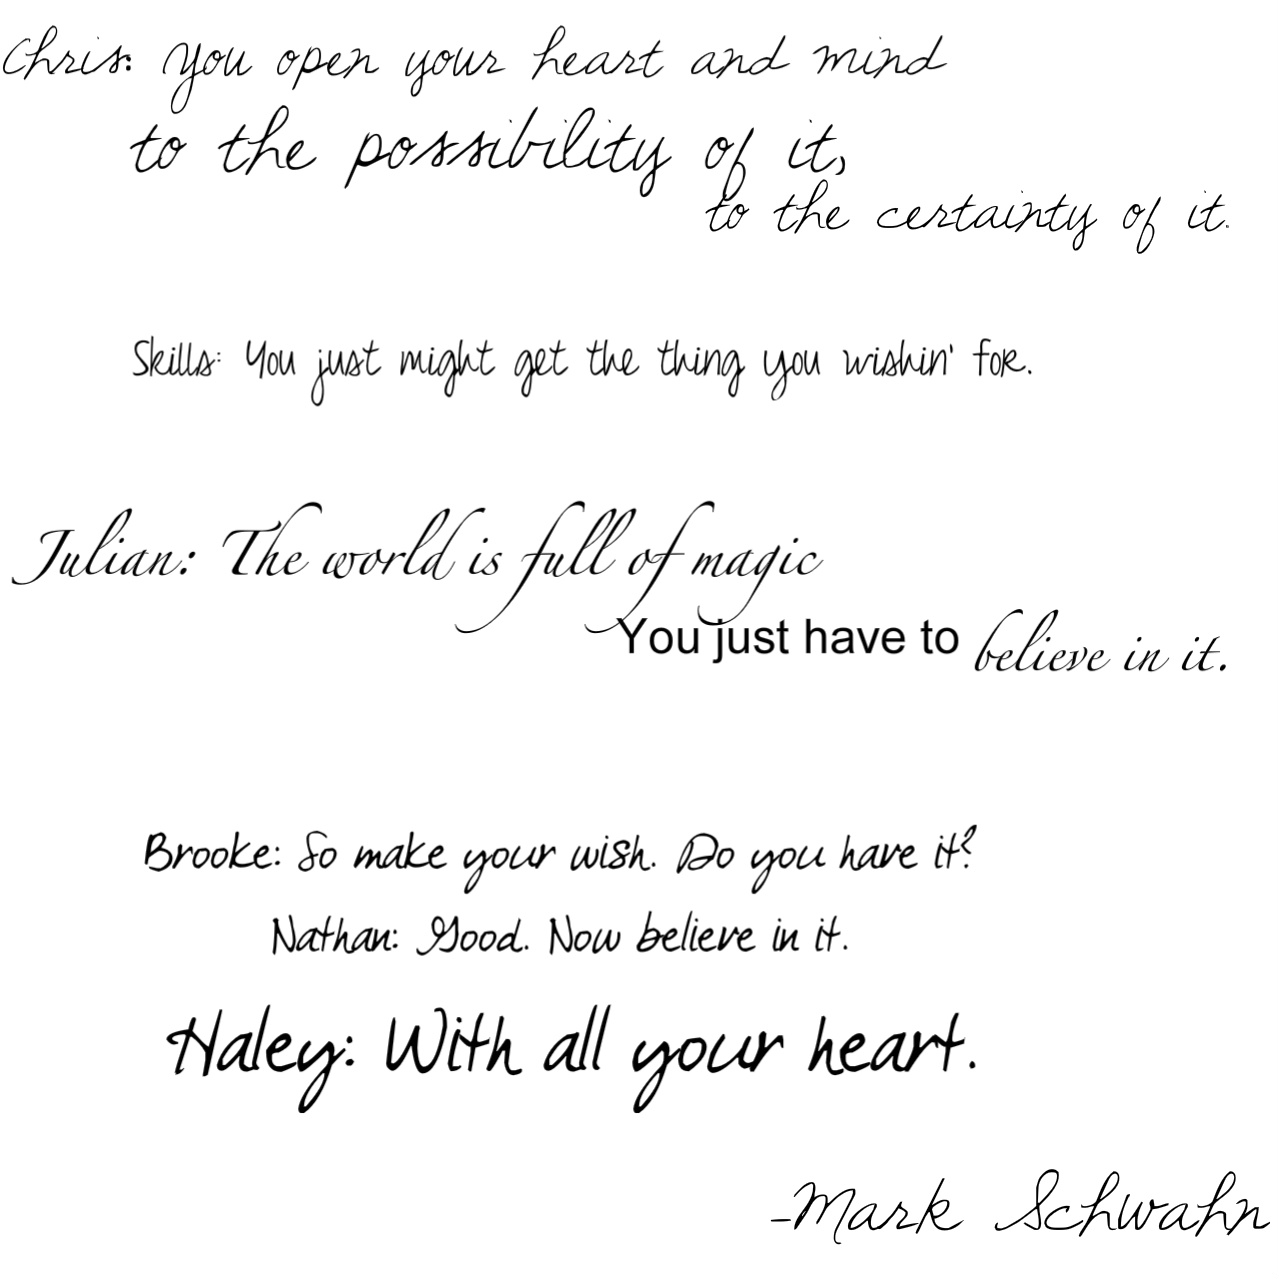 Chris: You open your heart and mind
to the possibility of it,
to the certainty of it.
Skills: You just might get the thing you wishin' for.
Julian: The world is full of magic
You just have to believe in it.
Brooke: So make your wish. Do you have it?
Nathan: Good. Now believe in it.
Haley: With all your heart.
-Mark Schwahn